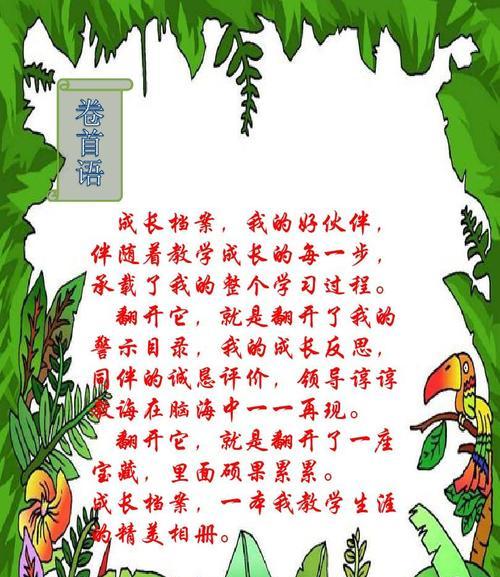 卷首语
成长档案，我的好伙伴，
伴随着教学成长的每一步，
承载了我的整个学习过程。
翻开它，就是翻开了我的
警示目录，我的成长反思，
同伴的诚恳评价，领导谆谆
教诲在脑海中一一再现。
翻开它，就是翻开了一座
宝藏，里面硕果累累。
成长档案，一本我教学生涯
的精美相册。